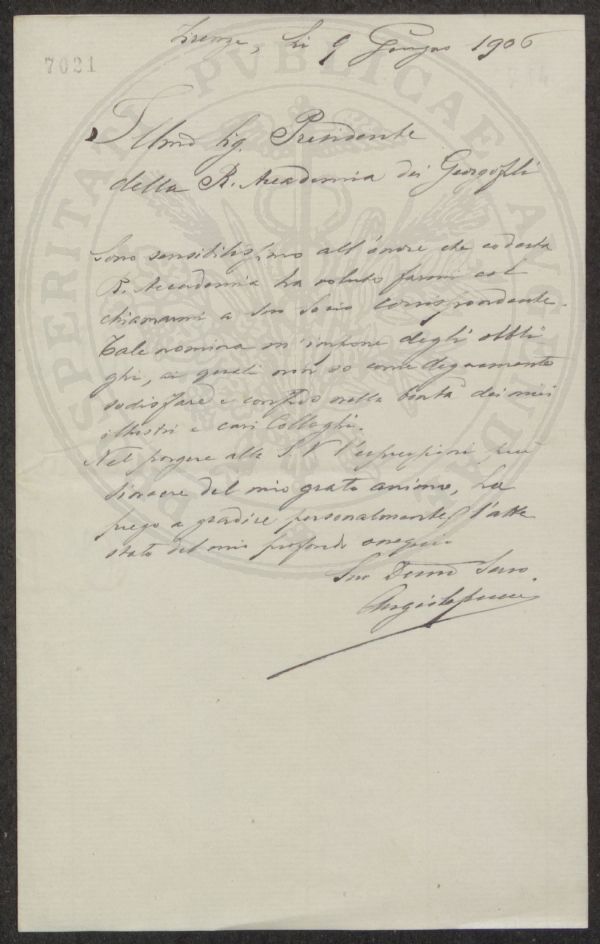 Firenze, li 9 Giugno 1906
7021
Illmo Sig. Presidente
della R. Accademia dei Georgofili
Sono sensibilissimo all'onore che codesta
R. Accademia ha voluto farmi col
chiamarmi a suo Socio corrispondente.
Tale nomina m'impone degli obbli
ghi, ai quali non so come degnamente
sodisfare e confido nella bontà dei miei
illustri e cari Colleghi.
Nel porgere alla S.V. l'espressioni più
sincere del mio grato animo, La
prego a gradire personalmente l'atte
stato del mio profondo ossequio
Suo Devmo Servo
PROSPERITATI PVBLICAE AVGENDAE